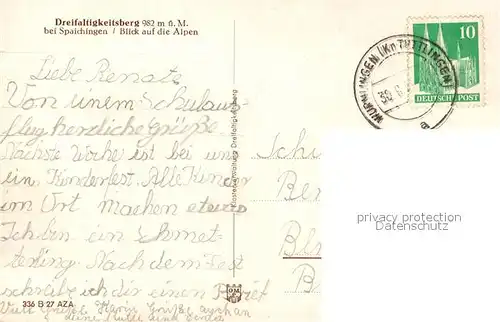 Dreifaltigkeitsberg 982 m ü. M.
bei Spaichingen / Blick auf die Alpen
WURMLINGEN (Kr. TUTTLINGEN)
30
10
DEUTSCHE POST
Liebe Renate
Von einem Schulaus-
flug herzliche Grüße
Nächste Woche ist bei uns
ein Kinderfest. Alle Kinder
im Ort machen etwas
Ich bin ein Schmet-
terling. Nach dem Fest
schreibe ich dir einen Brief
Viele Grüße Karin Grüße auch an
deine Mutti und
Klosterverwaltung Dreifaltigkeitsberg
336 B 27 AZA
Sch
Be
Bl
B
privacy protection
Datenschutz